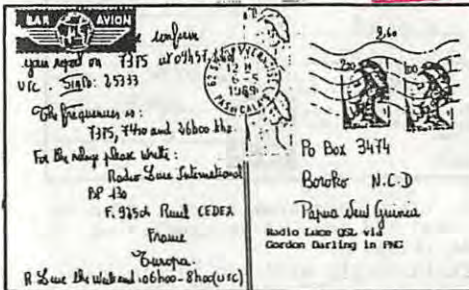 PAR AVION
confirm
your report on 7375 at 09457
UTC. SINPO: 25333
The frequencies is:
7375, 7400 and 26600 khz.
For the relays please write:
Radio Luce International
BP 130
F. 92504 Rueil CEDEX
France
Europa.
R Luce the weekend. 06h00-8h00 (UTC)
12 H
6-5
1989
PAS DE CALAIS
2,60
Po Box 3474
Boroko N.C.D
Papua New Guinea
Radio Luce QSL via
Gordon Darling in PNG